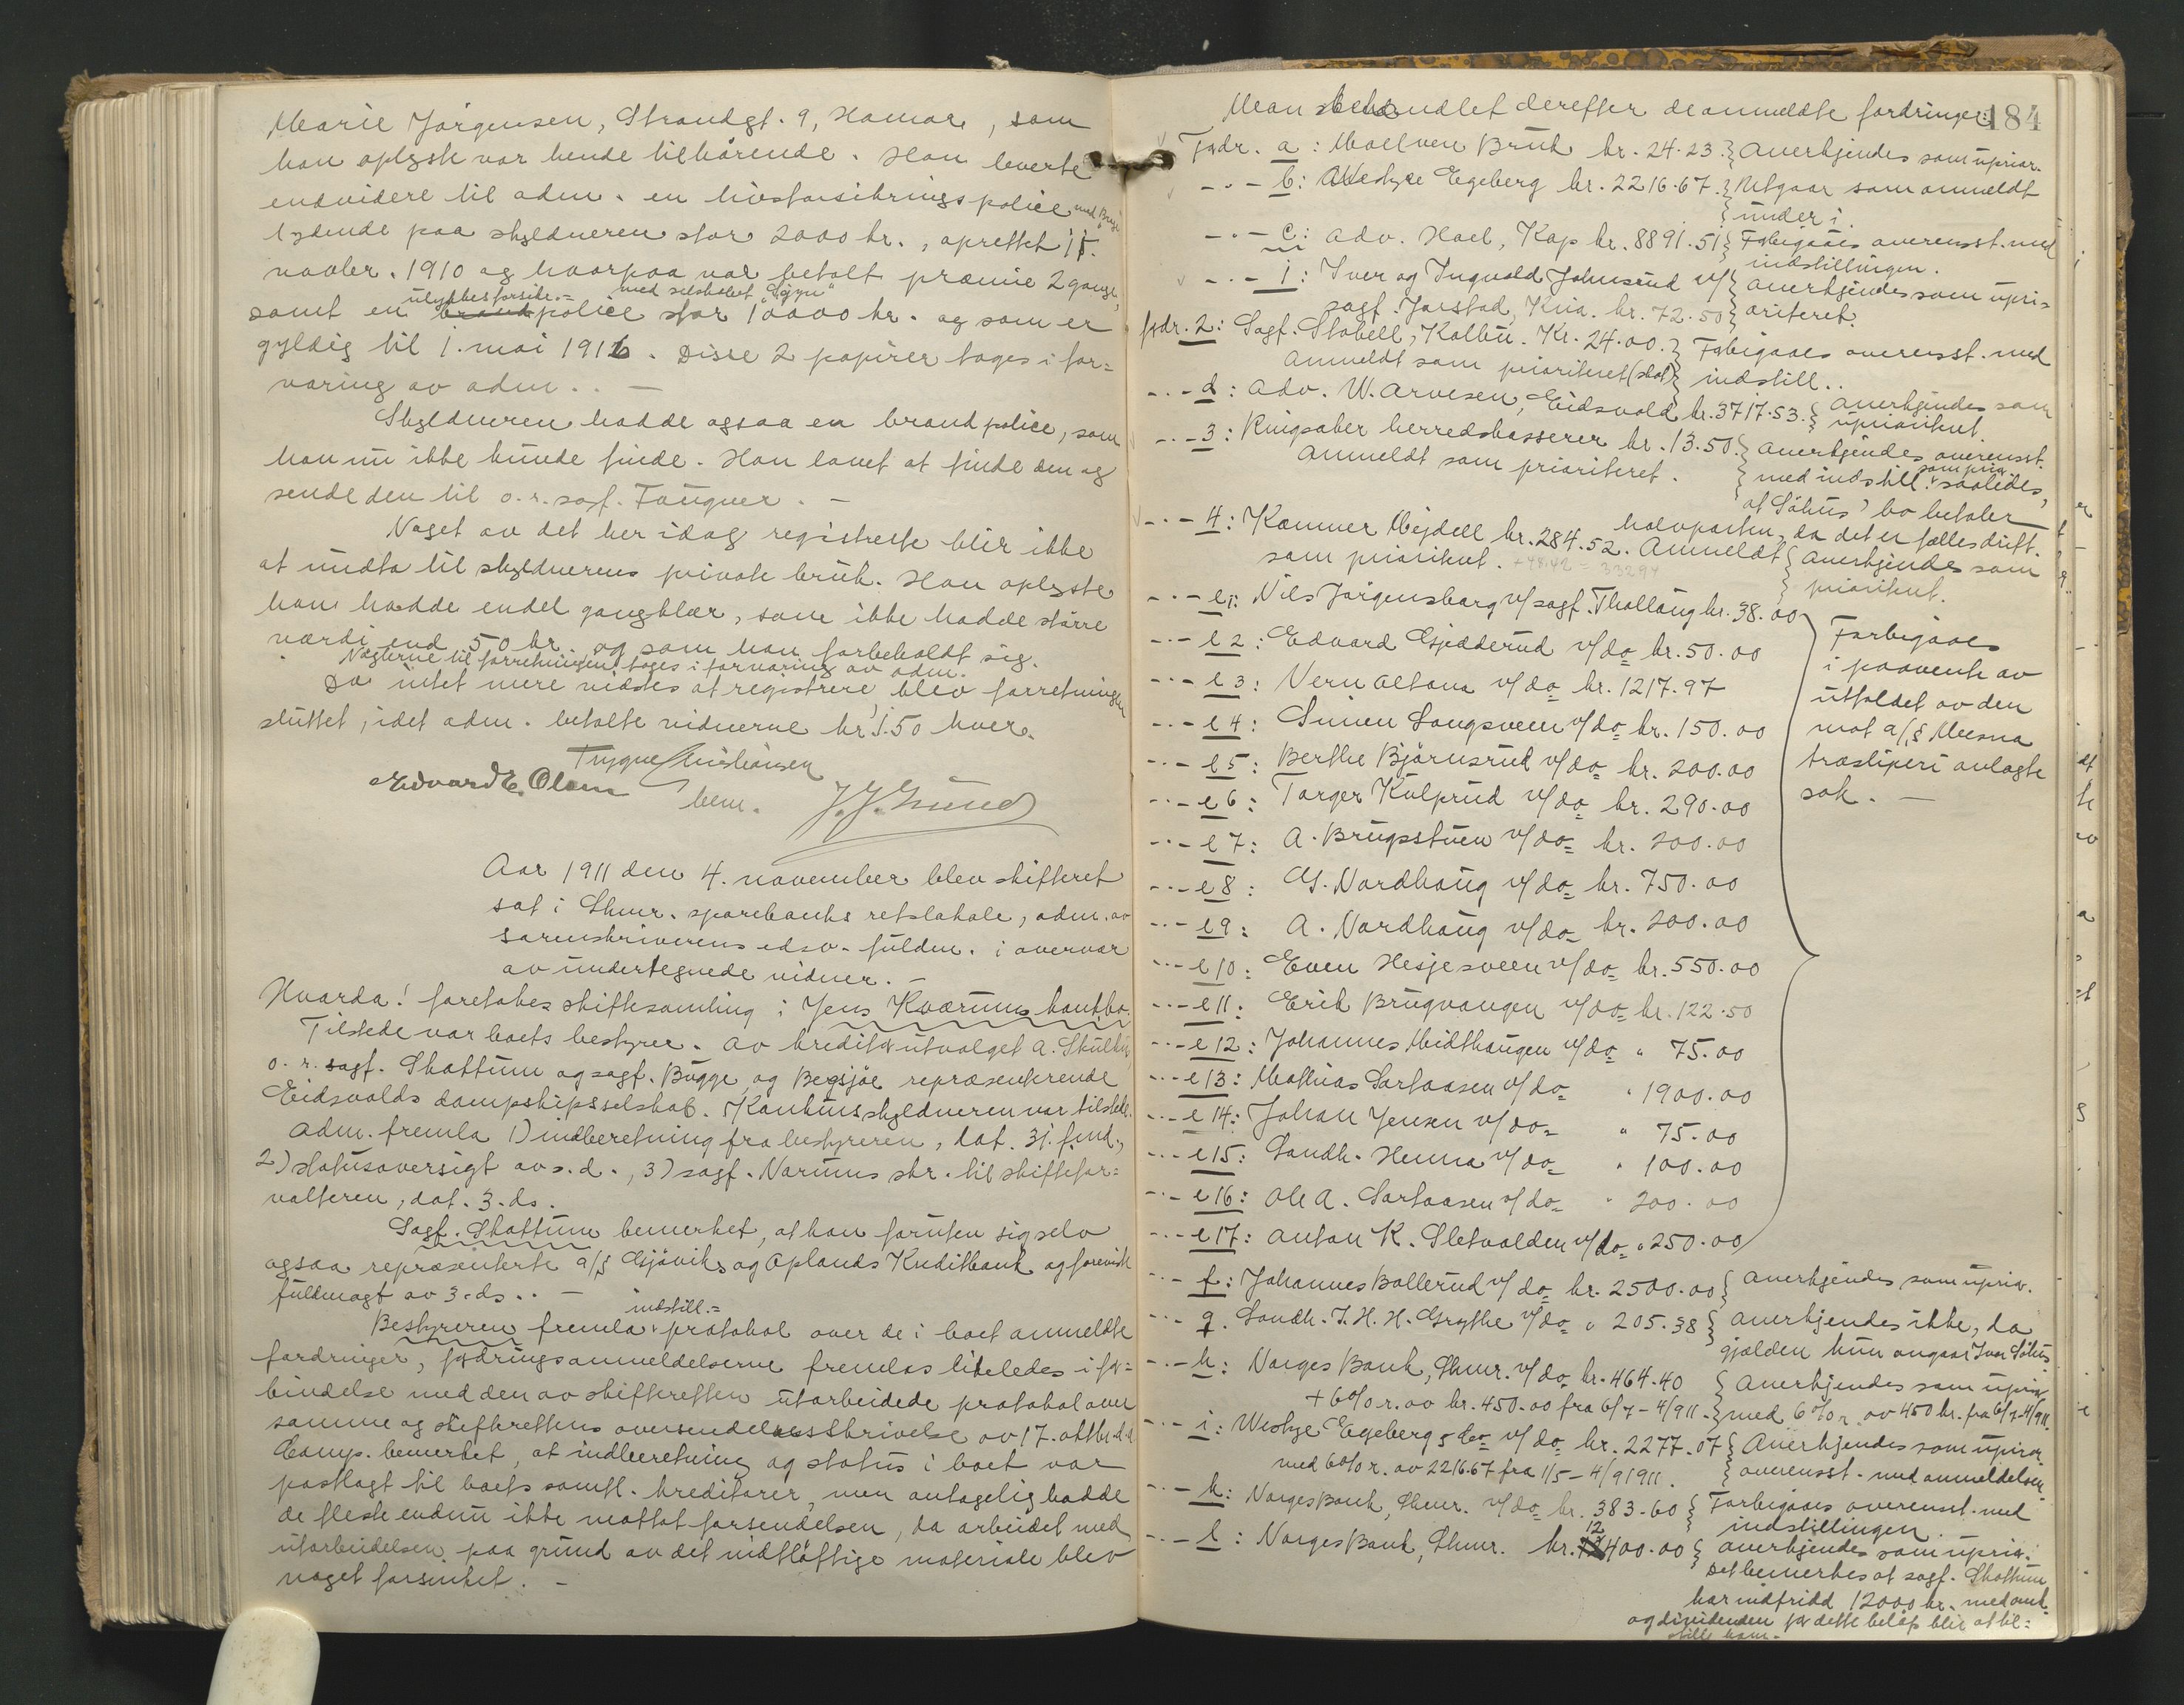 Marie Jørgensen, Strandgt. 9, Hamar, som
han oplyste var hende tilhørende. Han leverte
endvidere til adm. en livsforsikringspolice
lydende paa skyldneren stor 2000 kr., oprettet 15.
novbr. 1910 og hvorpaa var betalt præmie 2 gange,
ulykkesforsikr.= med selskabet "Sigyn"
samt en brandpolice stor 10000 kr. og som er
gyldig til 1. mai 1916. Disse 2 papirer tages i for=
varing av adm.. —
Skyldneren hadde ogsaa en brandpolice, som
han nu ikke kunde finde. Han lovet at finde den og
sende den til o.r.sagf. Fougner. —
Noget av det her idag registrerte blir ikke
at undta til skyldnerens private bruk. Han oplyste
han hadde endel gangklær, som ikke hadde større
værdi end 50 kr. og som han forbeholdt sig.
Nøglerne til forretningen tages i forvaring av adm.
Da intet mere vidstes at registrere, blev forretningen
sluttet, idet adm. betalte vidnerne kr. 1.50 hver.
Trygve Christiansen
Edvard E. Olsen bem. J. J. Grund
Aar 1911 den 4. november blev skifteret
sat i Lhmr. sparebanks retslokale, adm. av
sorenskriverens edsv. fuldm. i overvær
av undertegnede vidner. —
Hvorda! foretokes skiftesamling i Jens Kværums konk.bo.
Tilstede var boets bestyrer. Av kreditorutvalget A. Skulhus
o. r. sagf. Skattum og sagf. Bugge og Bergsjøe repræsenterende
Eidsvolds dampskipsselskab. Konkursskyldneren var tilstede.
Adm. fremla 1) indberetning fra bestyreren, dat. 31. f.md.,
2) statusoversigt av s.d., 3) sagf. Narums skr. til skiftefor=
valteren, dat. 3. ds.
Sagf. Skattum bemerket, at han foruten sig selv
ogsaa repræsenterte a/s Gjøviks og Oplands Kreditbank og foreviste
fuldmagt av 3. ds.. —
indstill.=
Bestyreren fremla protokol over de i boet anmeldte
fordringer, fordringsanmeldelserne fremlas likeledes i for=
bindelse med den av skifteretten utarbeidede protokol over
samme og skifterettens oversendelsesskrivelse av 17. oktbr. d.a.
Comp. bemerket, at indberetning og status i boet var
postlagt til boets samtl. kreditorer, men antagelig hadde
de fleste endnu ikke mottat forsendelsen, da arbeidet med
utarbeidelsen paa grund av det vidtløftige materiale blev
noget forsinket. —
184
Man behandlet derefter de anmeldte fordringer:
Fordr. a: Moelven Bruk kr. 24.23. } Anerkjendes som uprior.
- " - b: Westye Egeberg kr. 2216.67. } Utgaar som anmeldt
under i.
- " - c: Adv. Hoel, Kap kr. 8891.51 } Forbigaaes overensst. med
indstillingen.
- " - 1: Iver og Ingvald Johnsrud v/ } Anerkjendes som upri=
sagf. Jarstad, Kria. kr. 72.50 } oriteret.
fordr. 2: Sagf. Stabell, Kolbu. Kr. 24.00. } Forbigaaes overensst. med
Anmeldt som prioriteret (skat) } indstill..
- " - d: Adv. W. Arvesen, Eidsvold kr. 3717.53. } Anerkjendes som
uprioritert.
- " - 3: Ringsaker herredskasserer kr. 13.50. } Anerkjendes overensst.
Anmeldt som prioriteret. } med indstill. som prior. saaledes,
at Söhus' bo betaler
halvparten, da det er fællesdrift.
- " - 4: Kæmner Mejdell kr. 284.52. Anmeldt } Anerkjendes som
som prioritert. + 48.42 = 332.94 prioritert.
- " - e1: Nils Jørgensborg v/ sagf. Thallaug kr. 38.00
- " - e2: Edvard Gjædderud v/ do= kr. 50.00 Forbigaaes
- " - e3: Vern Altona v/ do= kr. 1217.97 i paavente av
- " - e4: Simen Langsveen v/ do= kr. 150.00 utfaldet av den
- " - e5: Berthe Bjørnsrud v/ do= kr. 200.00 mot a/s Mesna
- " - e6: Torger Kulprud v/ do= kr. 290.00 træsliperi anlagte
sak. —
- " - e7: A. Brugsstuen v/ do= kr. 200.00
- " - e8: G. Nordhaug v/ do= kr. 750.00
- " - e9: A. Nordhaug v/ do= kr. 200.00
- " - e10: Even Hesjesveen v/ do= kr. 550.00
- " - e11: Erik Brugvangen v/ do= kr. 122.50
- " - e12: Johannes Midthaugen v/ do= " 75.00
- " - e13: Mathias Lortaasen v/ do= " 1900.00
- " - e14: Johan Jensen v/ do= " 75.00
- " - e15: Landh. Henna v/ do= " 100.00
- " - e16: Ole A. Lortaasen v/ do= " 200.00
- " - e17: Anton K. Sletvolden v/ do= " 250.00
- " - f: Johannes Ballerud v/ do= kr. 2500.00 } Anerkjendes som uprior.
- " - g. Landh. J. H. H. Grythe v/ do= " 205.38 } Anerkjendes ikke, da
gjælden kun angaar Iver Söhus
- " - h: Norges Bank, Lhmr. v/ do= kr. 464.40 } Anerkjendes som uprior
+ 6% r. av kr. 450.00 fra 6/7 - 4/9 11. } med 6% r. av 450 kr. fra 6/7-4/9 11.
- " - i: Westye Egeberg & Co= v/ do= kr. 2277.07 } Anerkjendes som uprior
med 6% r. av 2216.67 fra 1/5 - 4/9 1911. } overensst. med anmeldelsen
- " - k: Norges Bank, Lhmr. v/ do= kr. 383.60 } Forbigaaes overensst. med
indstillingen.
- " - l: Norges Bank, Lhmr. kr. 12400.00 } Anerkjendes som uprior.
Det bemerkes at sagf. Skattum
har indfridd 12000 kr. med omk.
og dividenden for dette beløp blir at til=
stille ham.